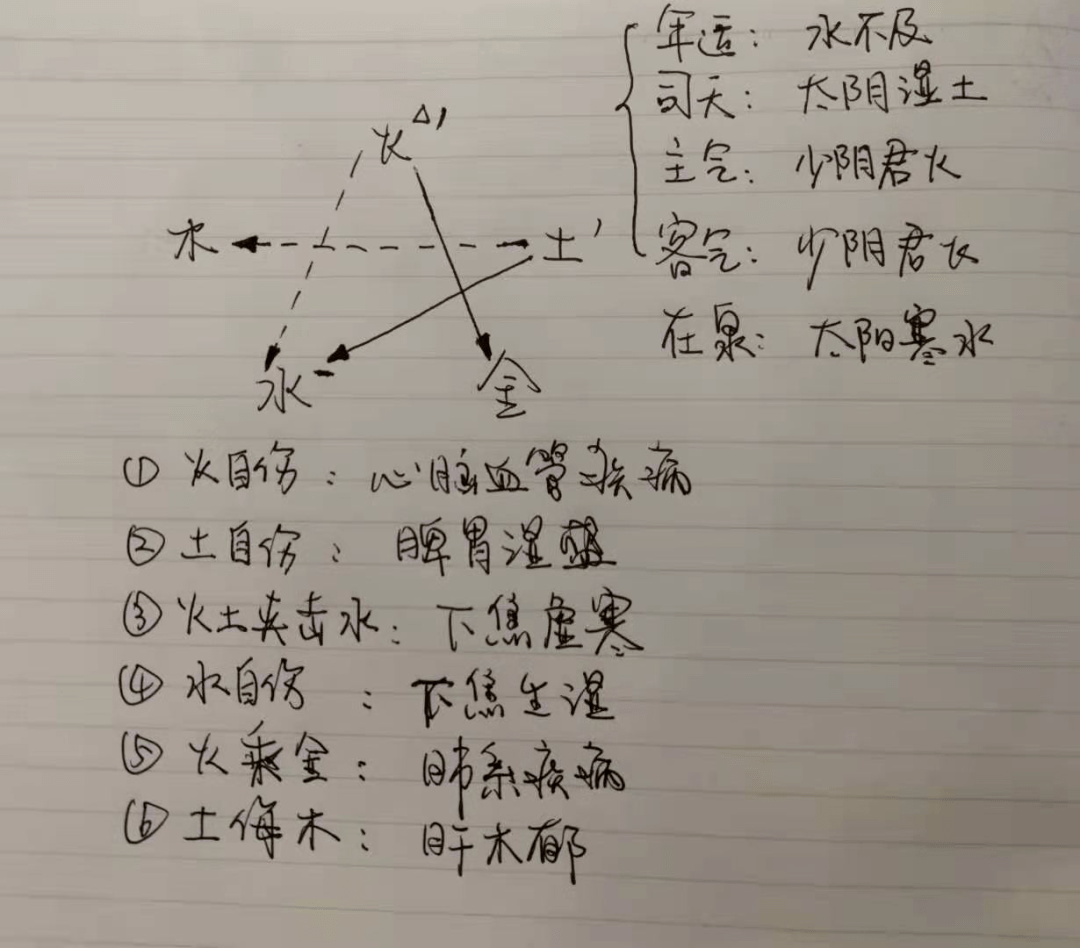 年运：水不及
司天：太阴湿土
主气：少阴君火
客气：少阴君火
在泉：太阳寒水
火
木
土
水
金
① 火自伤：心脑血管疾病
② 土自伤：脾胃湿盛
③ 火土夹击水：下焦虚寒
④ 水自伤：下焦生湿
⑤ 火乘金：肺系疾病
⑥ 土侮木：肝木郁